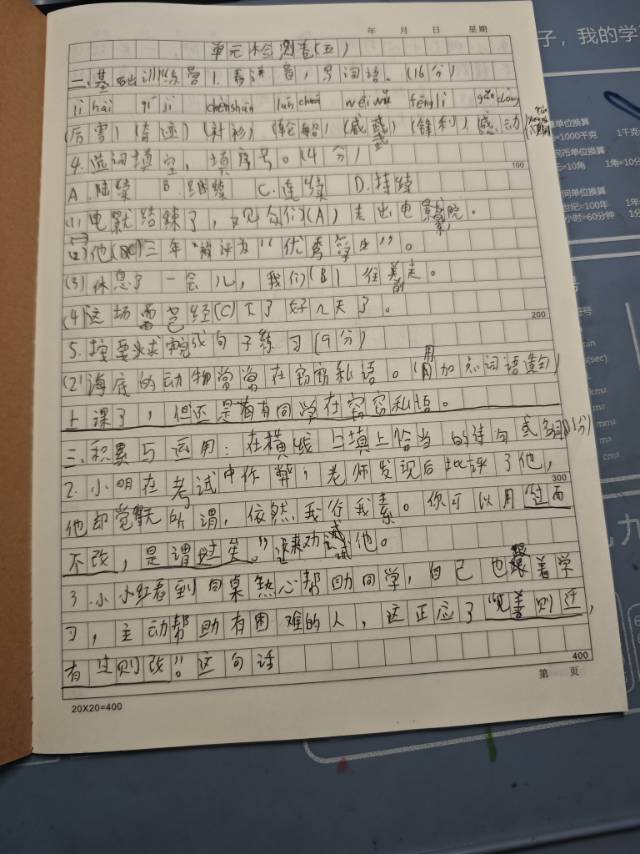 年 月 日 星期
单元检测卷(五)
二、基础训练营 1.看拼音,写词语。(16分)
lì hài qí jì chènshān lún chuán wēi wǔ fēnglì gǎn dòng
(厉害)(奇迹)(衬衫)(轮船)(威武)(锋利)(感动)
4.选词填空,填序号。(4分)
100
A.陆续 B.继续 C.连续 D.持续
(1)电影结束了,观众们(A)走出电影院。
(2)他 三年被评为"优秀学生"。
(3)休息了一会儿,我们(B)往前走。
(4)这场雨已经(C)下了好几天了。
200
5.按要求完成句子练习(9分)
(2)海底的动物常常在窃窃私语。(用加点词语造句)
上课了,但还是有同学在窃窃私语。
三、积累与运用:在横线上填上恰当的诗句或 分)
2.小明在考试中作弊,老师发现后批评了他,
300
他却觉无所谓,依然我行我素。你可以用"过而
不改,是谓过矣。"来劝诫他。
3.小红看到同桌热心帮助同学,自己也跟着学
习,主动帮助有困难的人,这正应了"见善则迁,
有过则改"。这句话
400
20X20=400
第 页
子,我的学
单位换算
=1000千克
1千克
币单位换算
=10角
1角=10分
间单位换算
世纪=100年
小时=60分钟